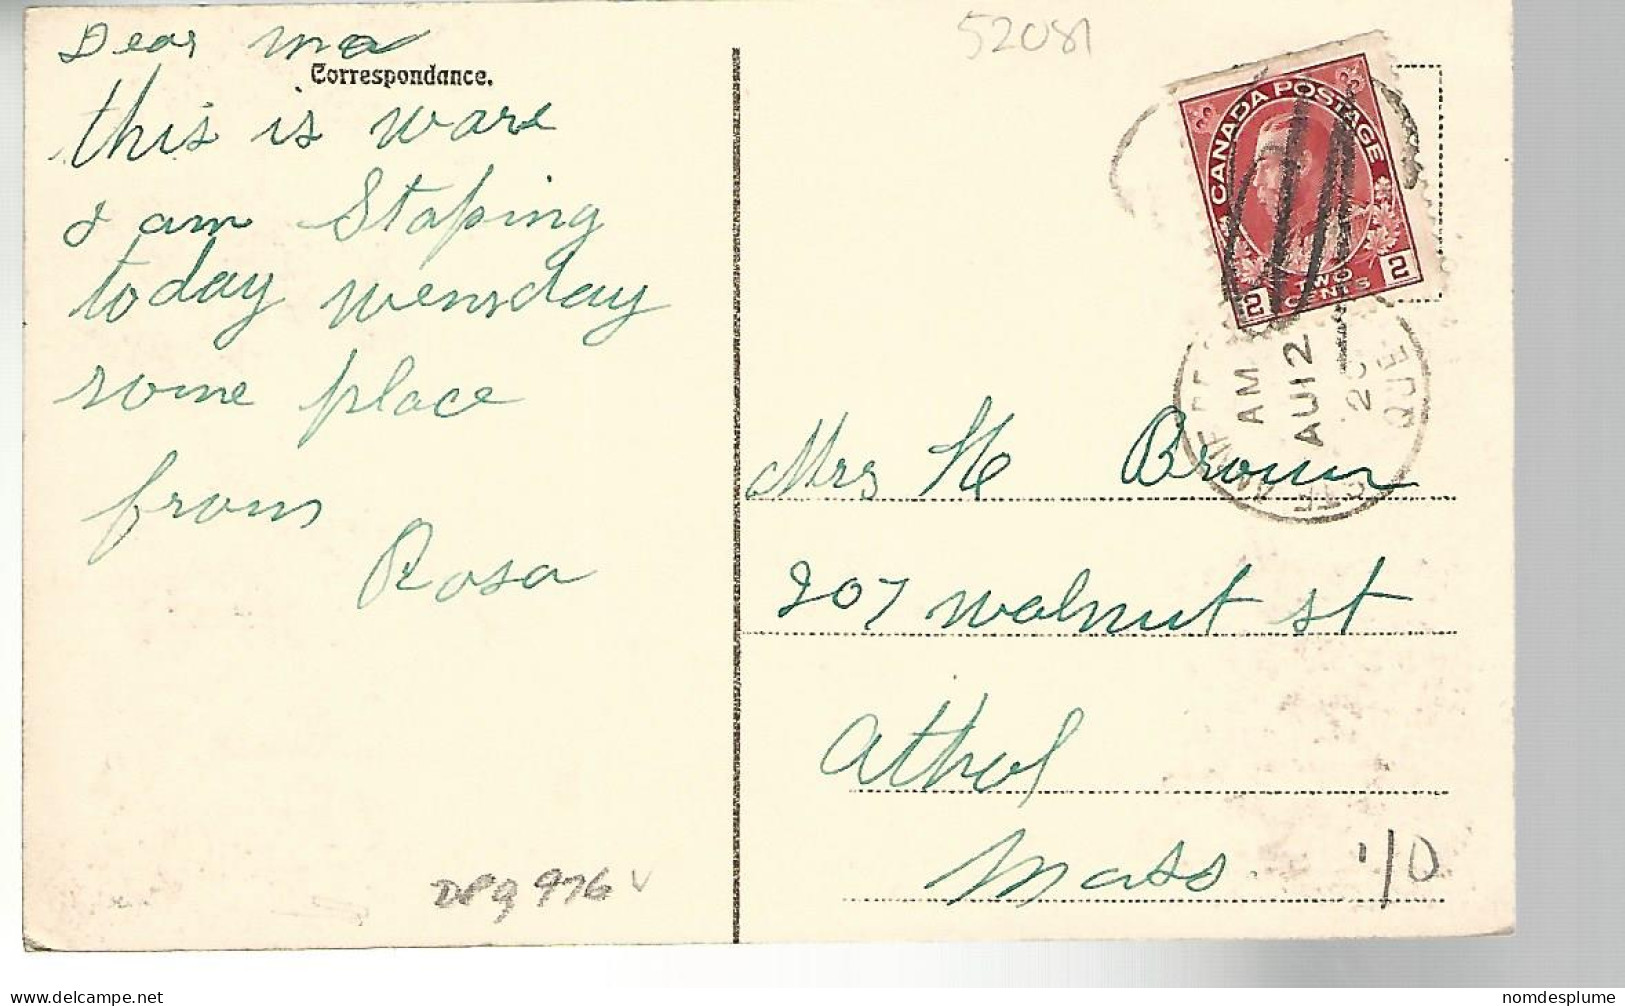 Dear ma
Correspondance.
this is ware
I am Staping
today wensday
some place
from
Rosa
52081
CANADA POSTAGE
2 TWO CENTS 2
AM
AU 12
QUE
Mrs H Brown
207 walnut st
Athol
Mass.
1/0
976
nomdesplume